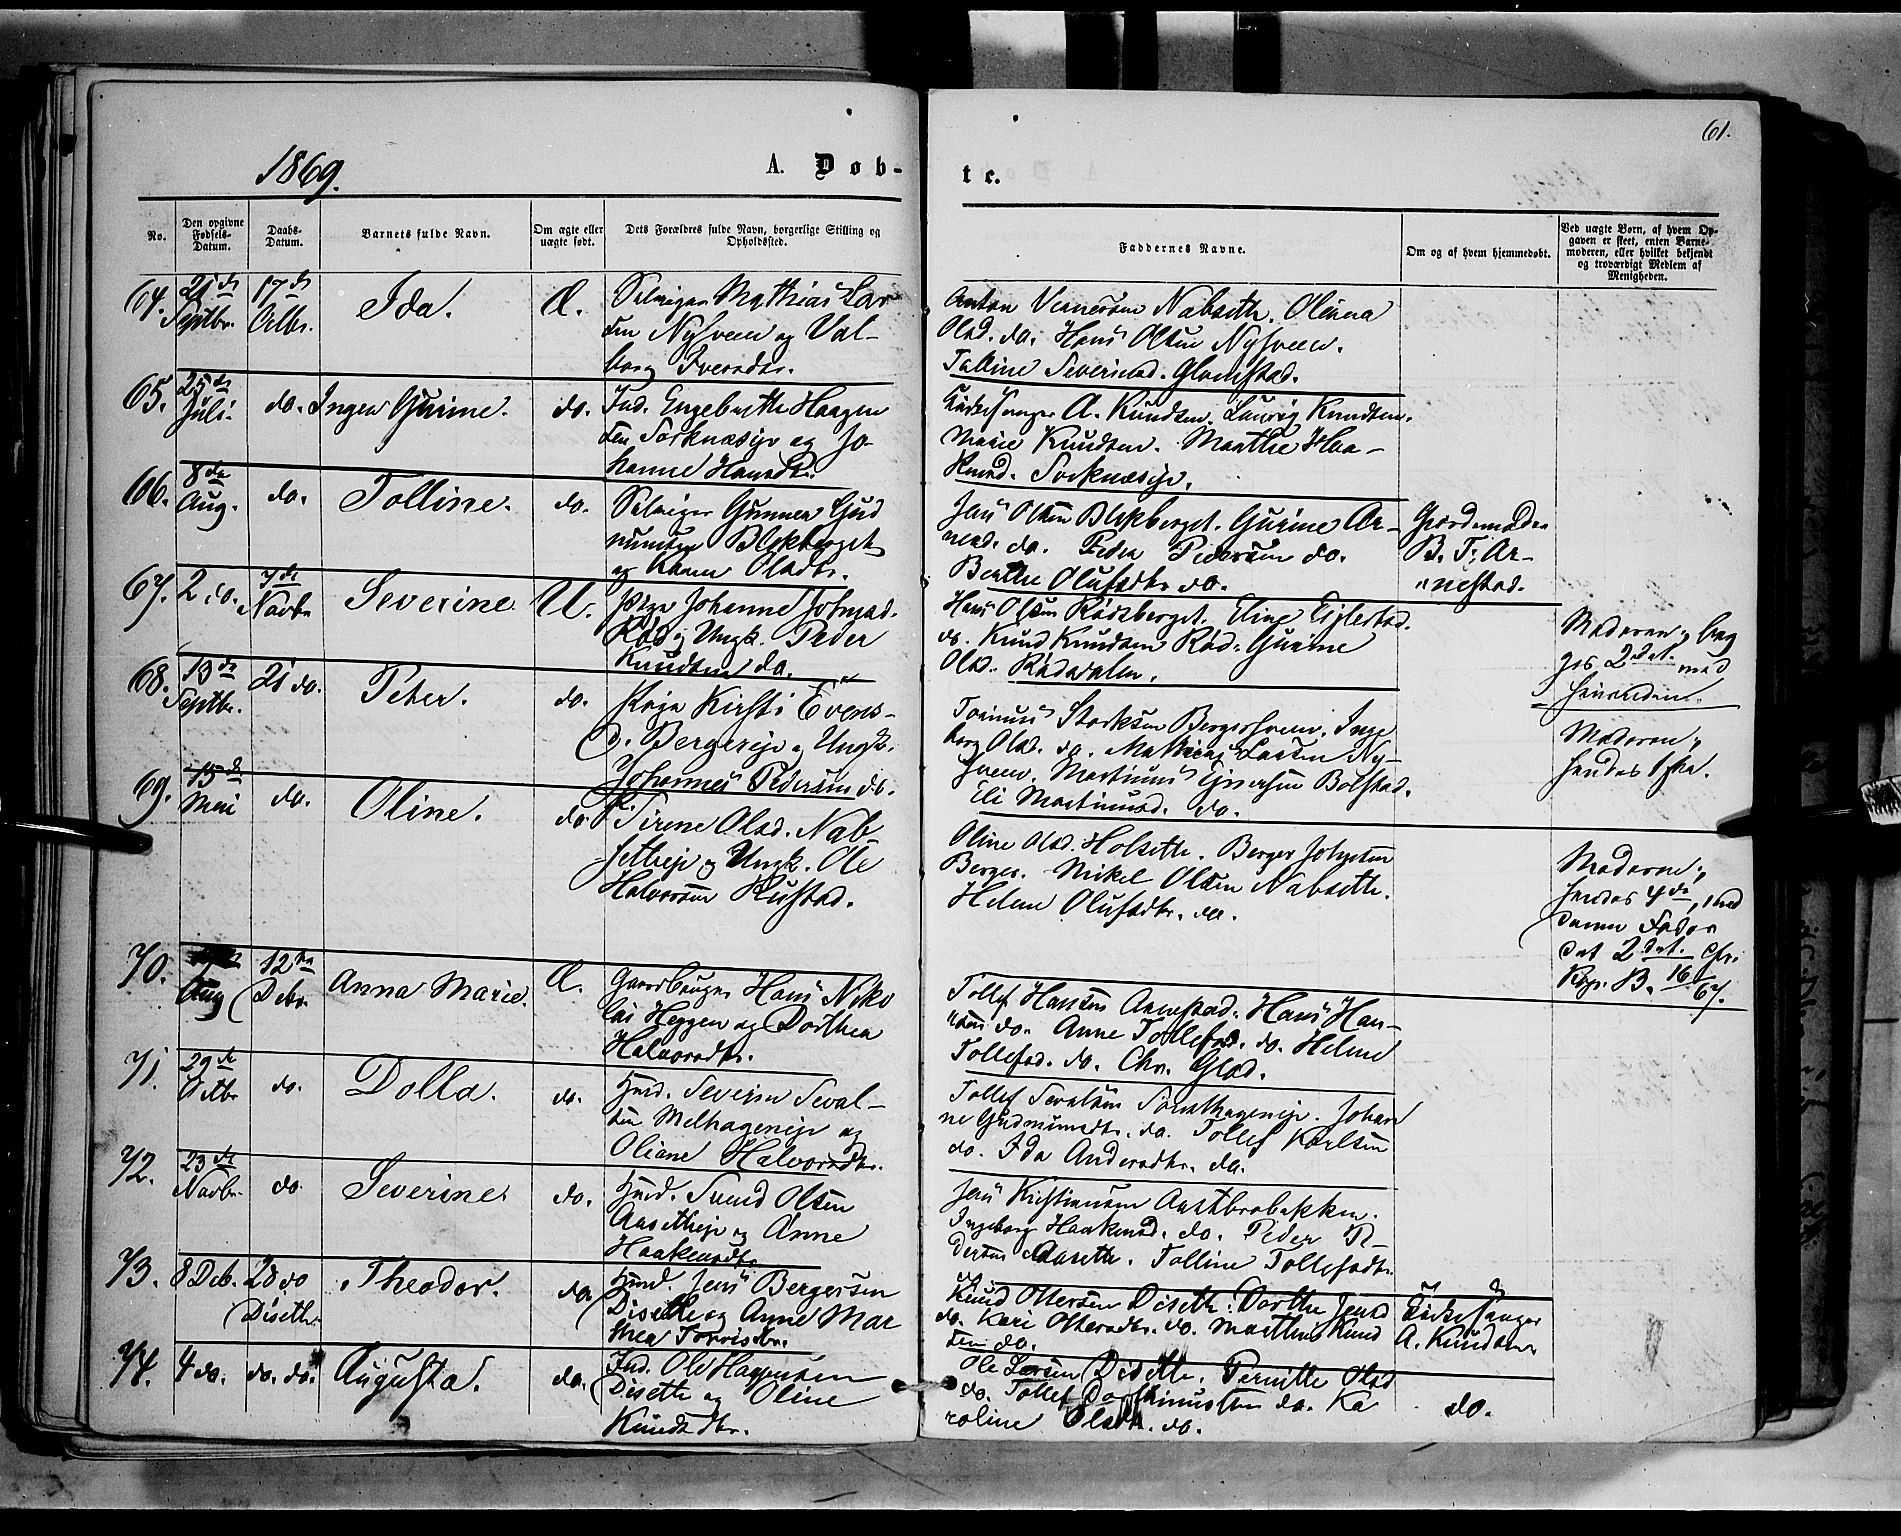 61.
1869.
A. Døb-
te.
No.
Den opgivne Fødsels-Datum.
Daabs-Datum.
Barnets fulde Navn.
Om ægte eller uægte født.
Dets Forældres fulde Navn, borgerlige Stilling og Opholdssted.
Faddernes Navne.
Om og af hvem hjemmedøbt.
Ved uægte Børn, af hvem Opgaven er skeet, enten Barnemoderen, eller hvilket bekjendt og troværdigt Medlem af Menigheden.
64. 21de Septbr. 17de Octbr. Ida. Æ.
Selveier Mathias Lar
sen Nysveen og Val-
borg Iversdtr.
Olsd. do. Hans Olsen Nysveen.
65. 25de Juli. do. Inger Gurine. do.
Ind. Engebrette Haagen
sen Sorknæseje og Jo-
hanne Hansdtr.
Kirkesanger A. Knudsen. Laurig Knudsen.
Marie Knudsen. Marthe Haa-
kensd. Sorknæseje.
66. 8de Aug. do. Tolline. do.
Selveier Gunner Gud
munsen Blekberget
og Karen Olsdtr.
Jens Olsen Blekberget. Gurine Ar-
nesd. do. Peder Pedersen do.
Berthe Olufsdtr. do.
Gjordemoder
B. T. Ar-
nestad.
67. 2 do. 7de Novbr. Severine U.
Pige Johanne Johnsd.
Rød og Ungk. Peder
Knudsen do.
Hans Olsen Rødsberget. Eline
do. Knud Knudsen Rød. Gurine
Olsd. Rødsvolen.
Moderen; beg
ges 2det med
hinanden.
68. 13de Septbr. 21 do. Peter. do.
Pige Kirsti Evens-
D. Bergereje og Ungk.
Johannes Pedersen do.
borg Olsd. do. Mathias Larsen Ny-
sveen.
Eli Martinusd. do.
Moderen;
hendes 1ste.
69. 15de Mai do. Oline. do.
P. Tirene Olsd. Nab
setheje og Ungk. Ole
Halvorsen Rustad.
Oline Olsd. Holsette. Berger Johnsen
Berger. Mikel Olsen Nabsette.
Helene Olufsdtr. do.
Moderen;
hendes 4de, med
denne Fader
det 2det. cfr.
Reg. B. 16/67.
70. Aug 12te Debr. Anna Marie. Æ.
Gaardbruger Hans Niko
lai Heggen og Dorthea
Halvorsdtr.
Tollef Hansen Arnestad. Hans Han-
sen do. Anne Tollefsd. do. Helene
Tollefsd. do. Chr. Glad.
71. 29de Octbr. do. Dolla. do.
Husd. Severin Seval-
sen Melhageneje og
Oliane Halvorsdtr.
Tollef Sevalsen Sorthageneje. Johan
ne Gudmunsdtr. do. Tollef Karlsen
do. Ida Andersdtr. do.
72. 23de Novbr. do. Severine do.
Husd. Svend Olsen
Aasetheje og Anne
Haakensdtr.
Jens Kristiansen Aastbrobakken.
Ingeborg Haakensd. do. Peder Pe-
dersen Aasette. Tolline Tollefsdtr.
73. 8 Deb. 28 do Diseth. Theodor. do.
Husd. Jens Bergersen
Disette og Anne Mar
thea Torrisdtr.
Knud Ottersen Diseth. Dorthe Jensd
do. Kari Ottersdtr. do. Martin Knud
sen do.
Kirkesanger
A. Knudsen.
74. 4 do. do. do. Augusta. do.
Ind. Ole Haagensen
Disette og Oline
Knudsdtr.
Ole Larsen Disette. Pernille Olsd
do. Tollef do. Ka
roline Olsdtr. do.
do.